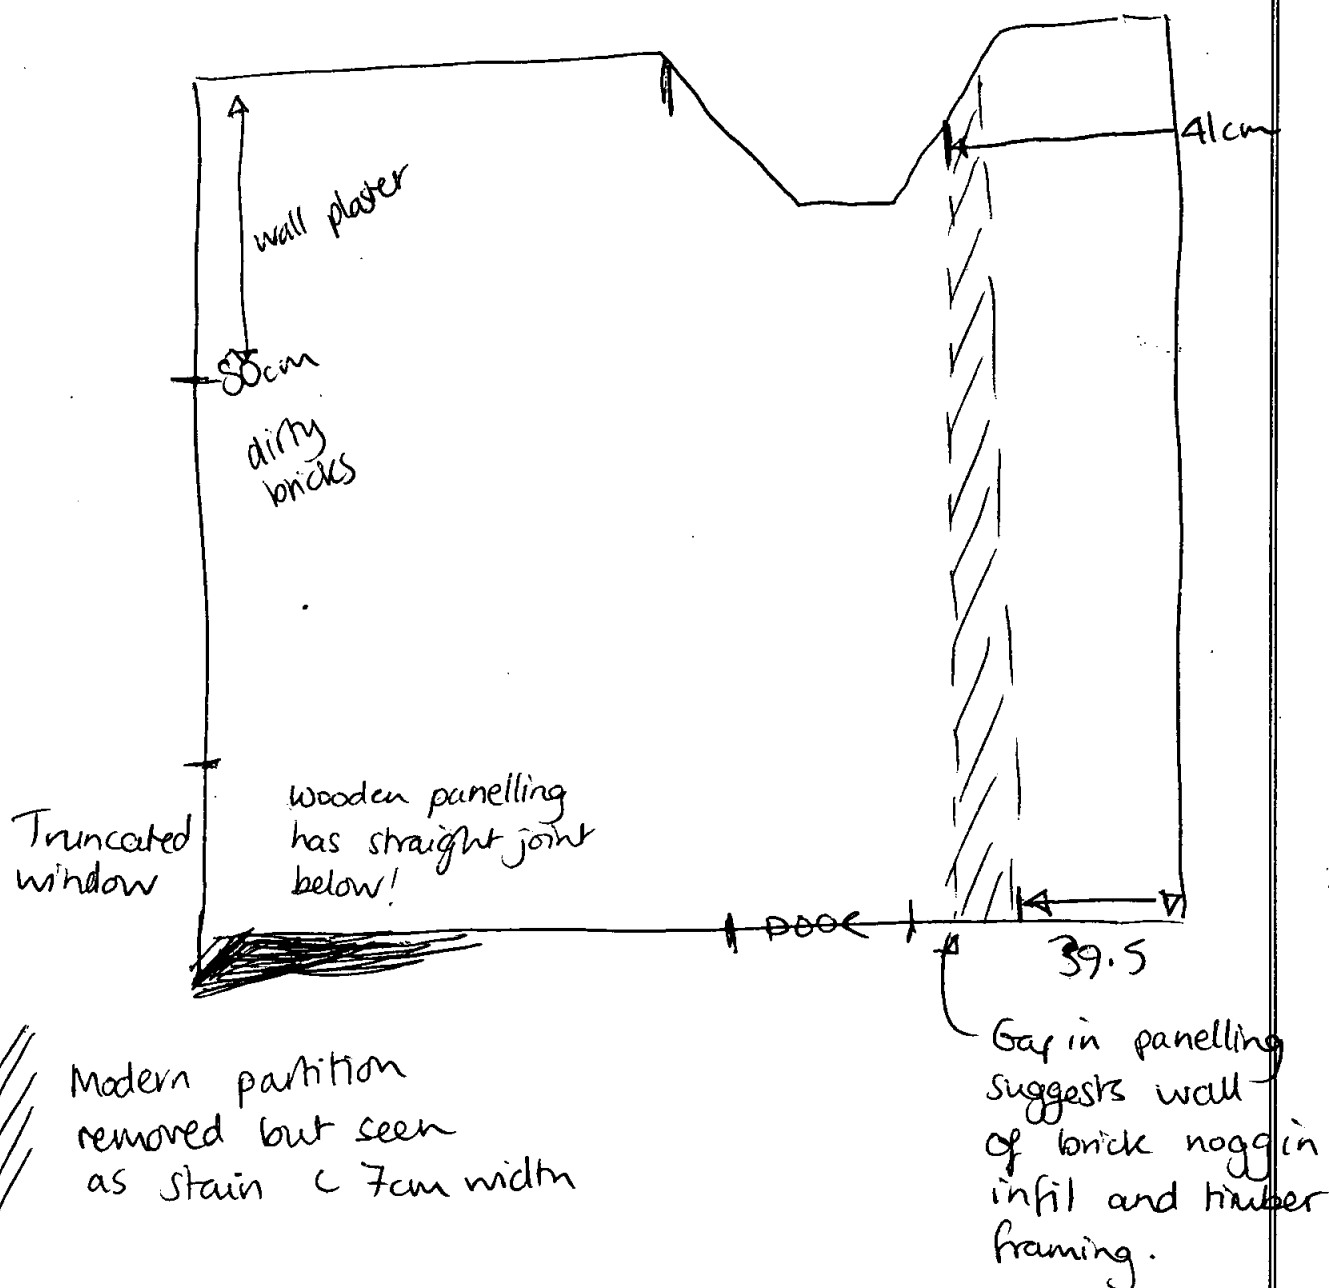 41cm
wall plaster
80cm
dirty
bricks
Truncated
window
wooden panelling
has straight joint
below!
DOOR
39.5
Modern partition
removed but seen
as stain c 7cm width
Gap in panelling
suggests wall
of brick noggin
infil and timber
framing.